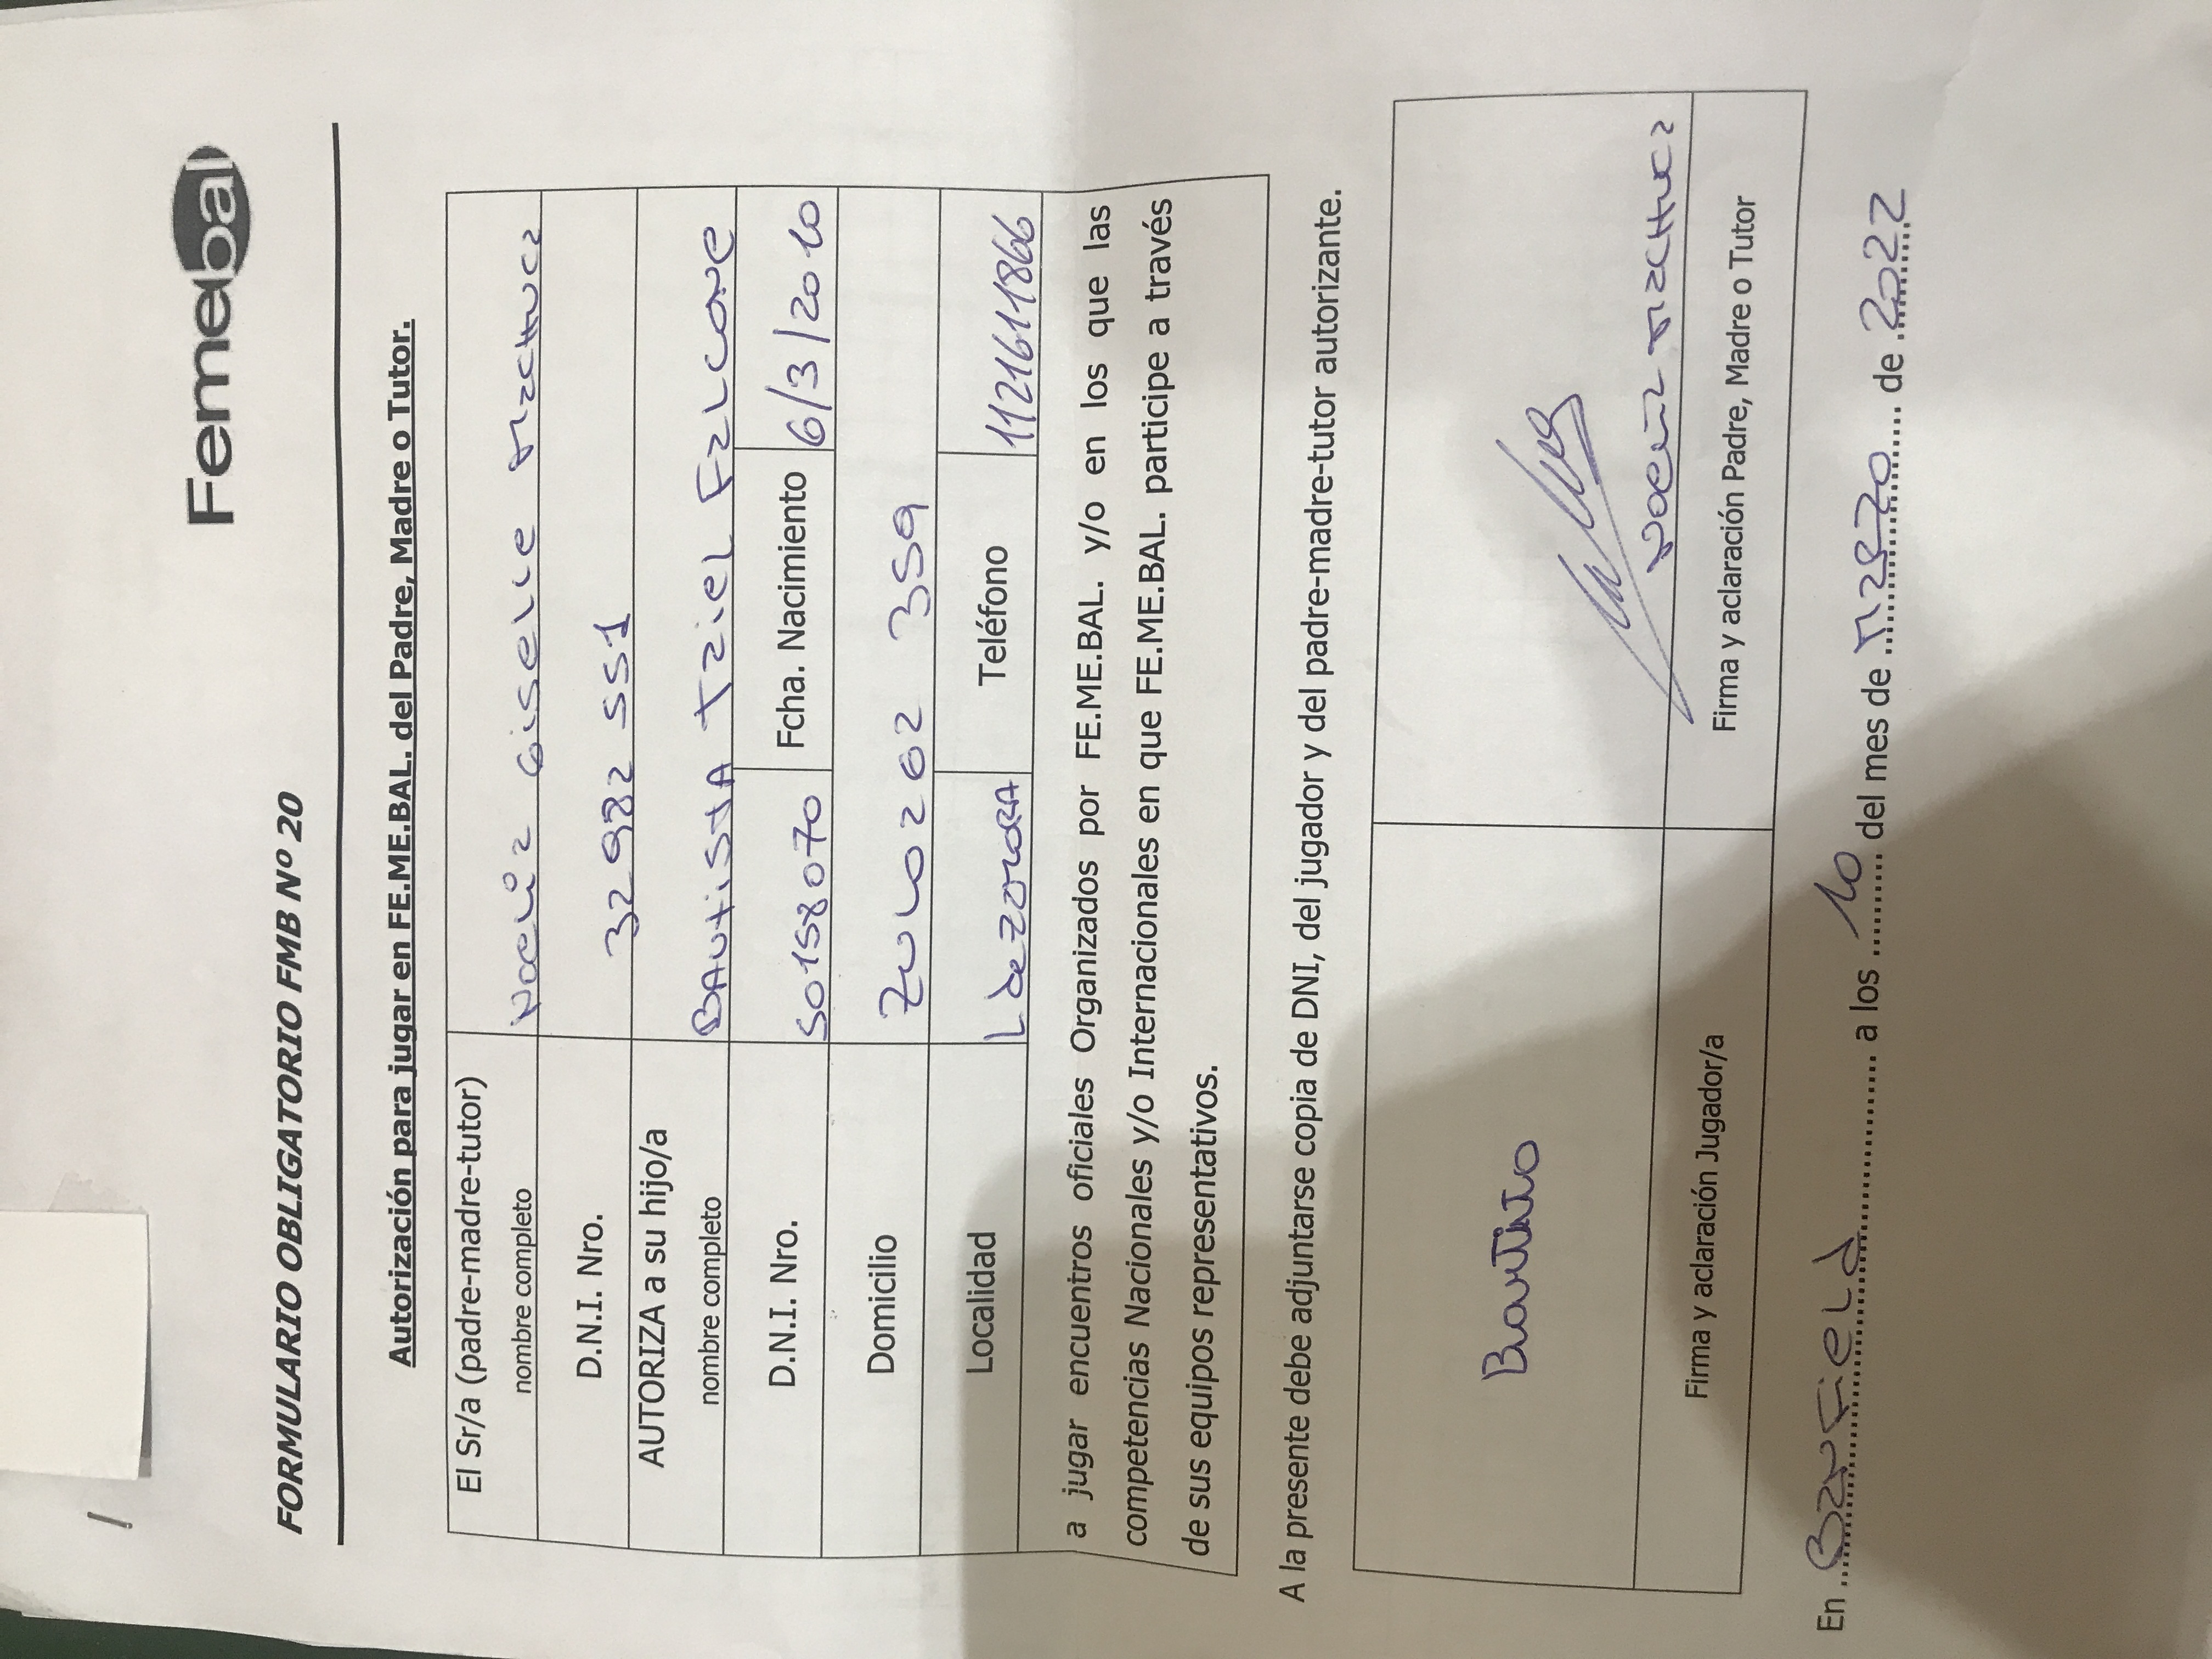 Femebal
FORMULARIO OBLIGATORIO FMB Nº 20
Autorización para jugar en FE.ME.BAL. del Padre, Madre o Tutor.
El Sr/a (padre-madre-tutor) nombre completo Noelia Giselle Machuca
D.N.I. Nro. 32 982 551
AUTORIZA a su hijo/a nombre completo BAUTISTA Tziel Falcone
D.N.I. Nro. 50158070 Fcha. Nacimiento 6/3/2010
Domicilio Zuloaga 359
Localidad L de Zamora Teléfono 1121611866
a jugar encuentros oficiales Organizados por FE.ME.BAL. y/o en los que las
competencias Nacionales y/o Internacionales en que FE.ME.BAL. participe a través
de sus equipos representativos.
A la presente debe adjuntarse copia de DNI, del jugador y del padre-madre-tutor autorizante.
Noelia Machuca
Firma y aclaración Jugador/a Firma y aclaración Padre, Madre o Tutor
En Banfield a los 10 del mes de Marzo de 2022